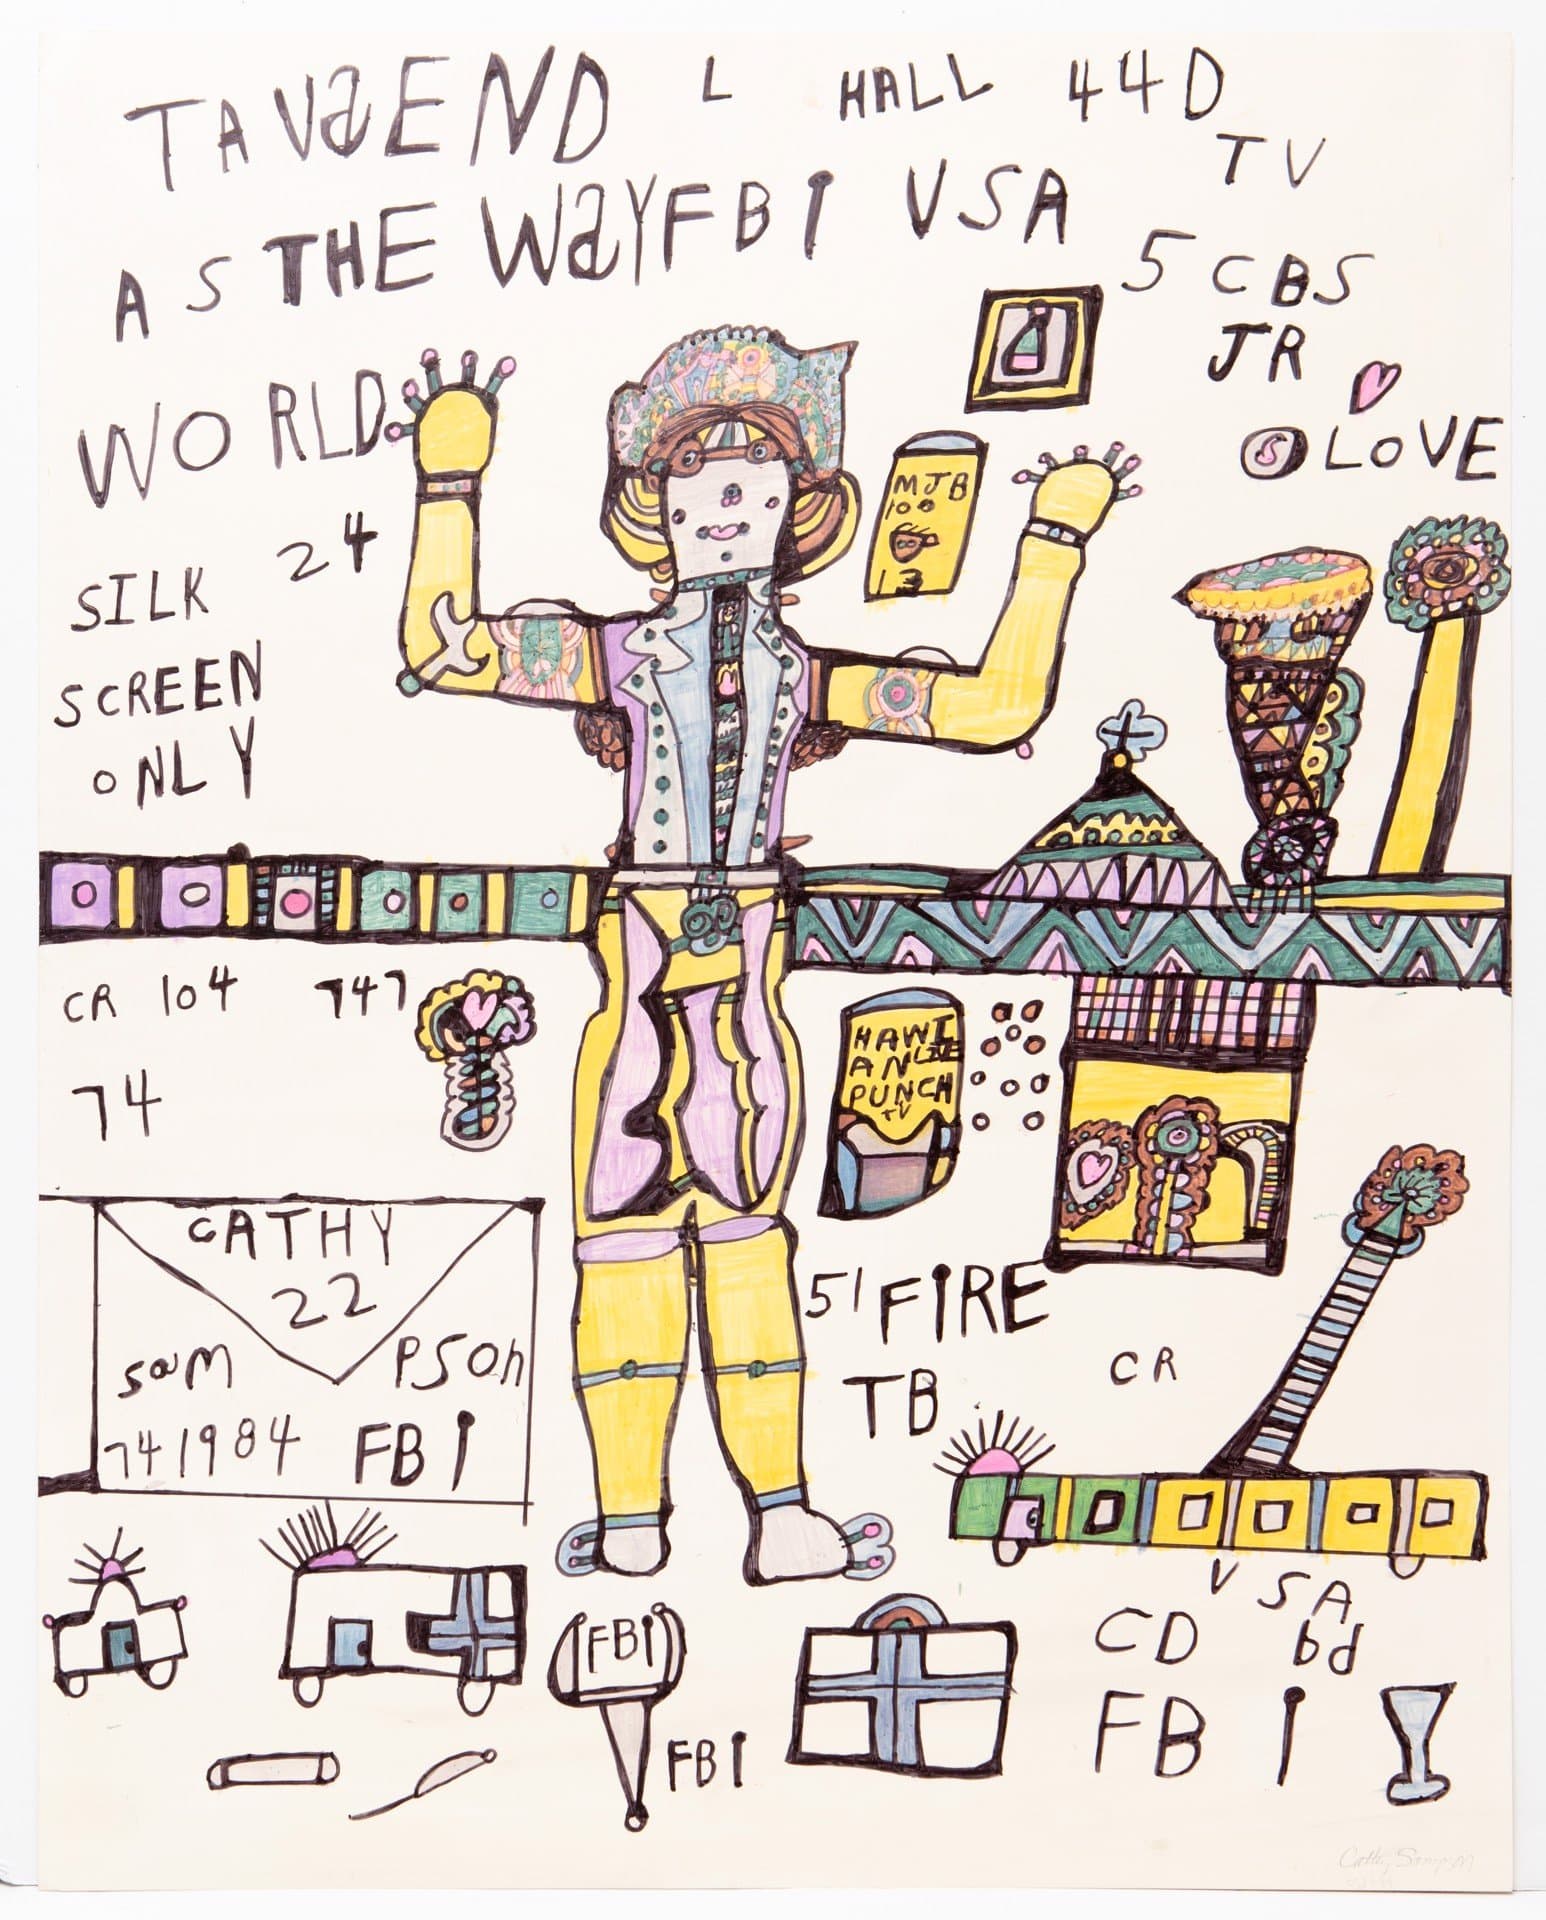 TAVaEND L HALL 44D
TV
AS THE WaYFBI VSA
5 CBS
JR
WORLD
S LOVE
24
MJB
100
13
SILK
SCREEN
ONLY
CR 104 747
74
HAWI
AN LIVE
PUNCH
TV
CATHY
22
sam PSOn
741984 FBI
51 FIRE
TB
CR
VSA
CD bd
FBI
FBI
FBI
Cathy Sampson